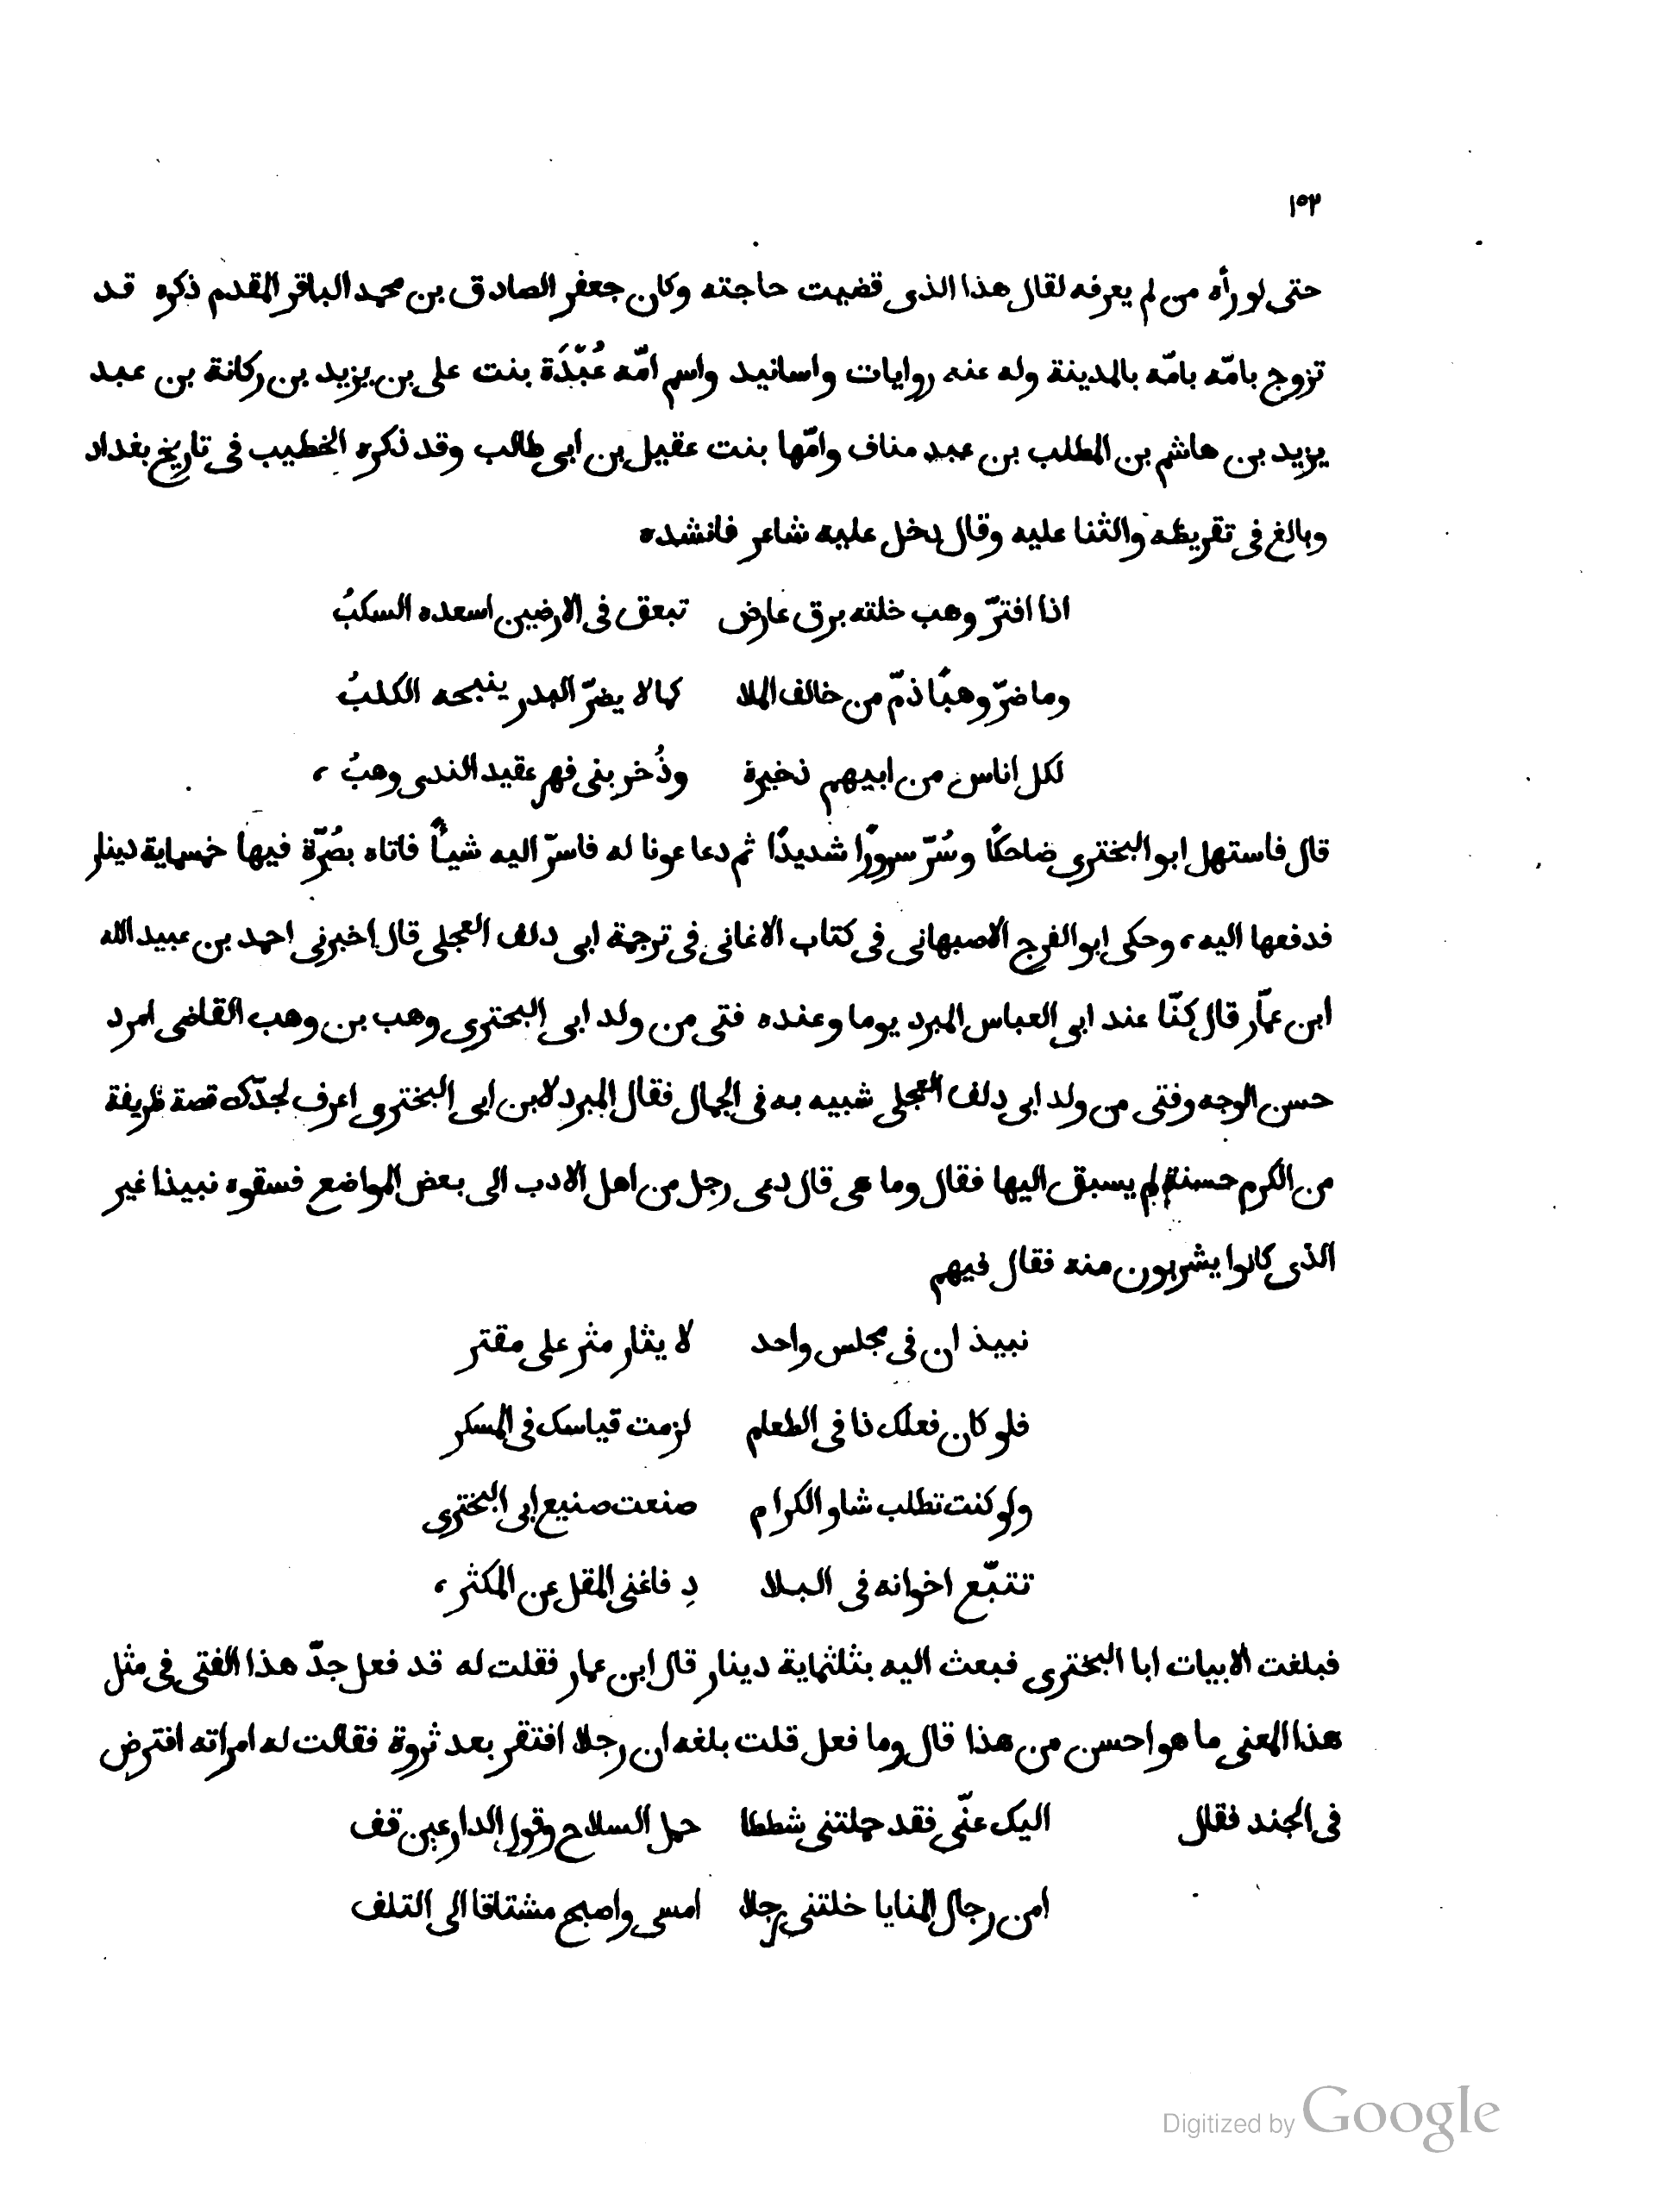 ١٥٢
حتى لو رأه من لم يعرفه لقال هذا الذى قضيت حاجته وكان جعفر الصادق بن محمد الباقر المقدم ذكره قد
تزوج بامّه بامّه بالمدينة وله عنه روايات واسانيد واسم امّه عُبّدَة بنت على بن يزيد بن ركانة بن عبد
يزيد بن هاشم بن المطلب بن عبد مناف وامّها بنت عقيل بن ابى طالب وقد ذكره الخطيب فى تاريخ بغداد
وبالغ فى تقريظه والثنا عليه وقال دخل عليه شاعر فانشده
اذا افترّ وهب خلته برق عارض تبعق فى الارضين اسعده السكبُ
وما ضرّ وهبًا ذمّ من خالف الملا كما لا يضرّ البدر ينبحه الكلبُ
لكل اناس من ابيهم ذخيرة وذُخر بنى فهر عقيد الندى وهبُ ،
قال فاستهل ابو البخترى ضاحكًا وسُرّ سرورًا شديدًا ثم دعا عونا له فاسرّ اليه شيأً فاتاه بصُرّة فيها خمسماية دينار
فدفعها اليه ، وحكى ابو الفرج الاصبهانى فى كتاب الاغانى فى ترجمة ابى دلف العجلى قال اخبرنى احمد بن عبيد الله
ابن عمّار قال كنّا عند ابى العباس المبرد يوما وعنده فتى من ولد ابى البخترى وهب بن وهب القاضى امرد
حسن الوجه وفتى من ولد ابى دلف العجلى شبيه به فى الجمال فقال المبرد لابن ابى البخترى اعرف لجدّك قصة ظريفة
من الكرم حسنة لم يسبق اليها فقال وما هى قال دعى رجل من اهل الادب الى بعض المواضع فسقوه نبيذا غير
الذى كانوا يشربون منه فقال فيهم
نبيذ ان فى مجلس واحد لا يثار مثر على مقتر
فلو كان فعلك ذا فى الطعام لزمت قياسك فى المسكر
ولو كنت تطلب شاو الكرام صنعت صنيع ابى البخترى
تتبّع اخوانه فى البلا دِ فاغنى المقل عن المكثر ،
فبلغت الابيات ابا البخترى فبعث اليه بثلثماية دينار قال ابن عمار فقلت له قد فعل جدّ هذا الفتى فى مثل
هذا المعنى ما هو احسن من هذا قال وما فعل قلت بلغه ان رجلا افتقر بعد ثروة فقالت له امراته افترض
فى الجند فقال اليك عنّى فقد حملتنى شططا حمل السلاح وقول الدارعين قف
امن رجال المنايا خلتنى رجلا امسى واصبح مشتاقا الى التلف
Digitized by Google